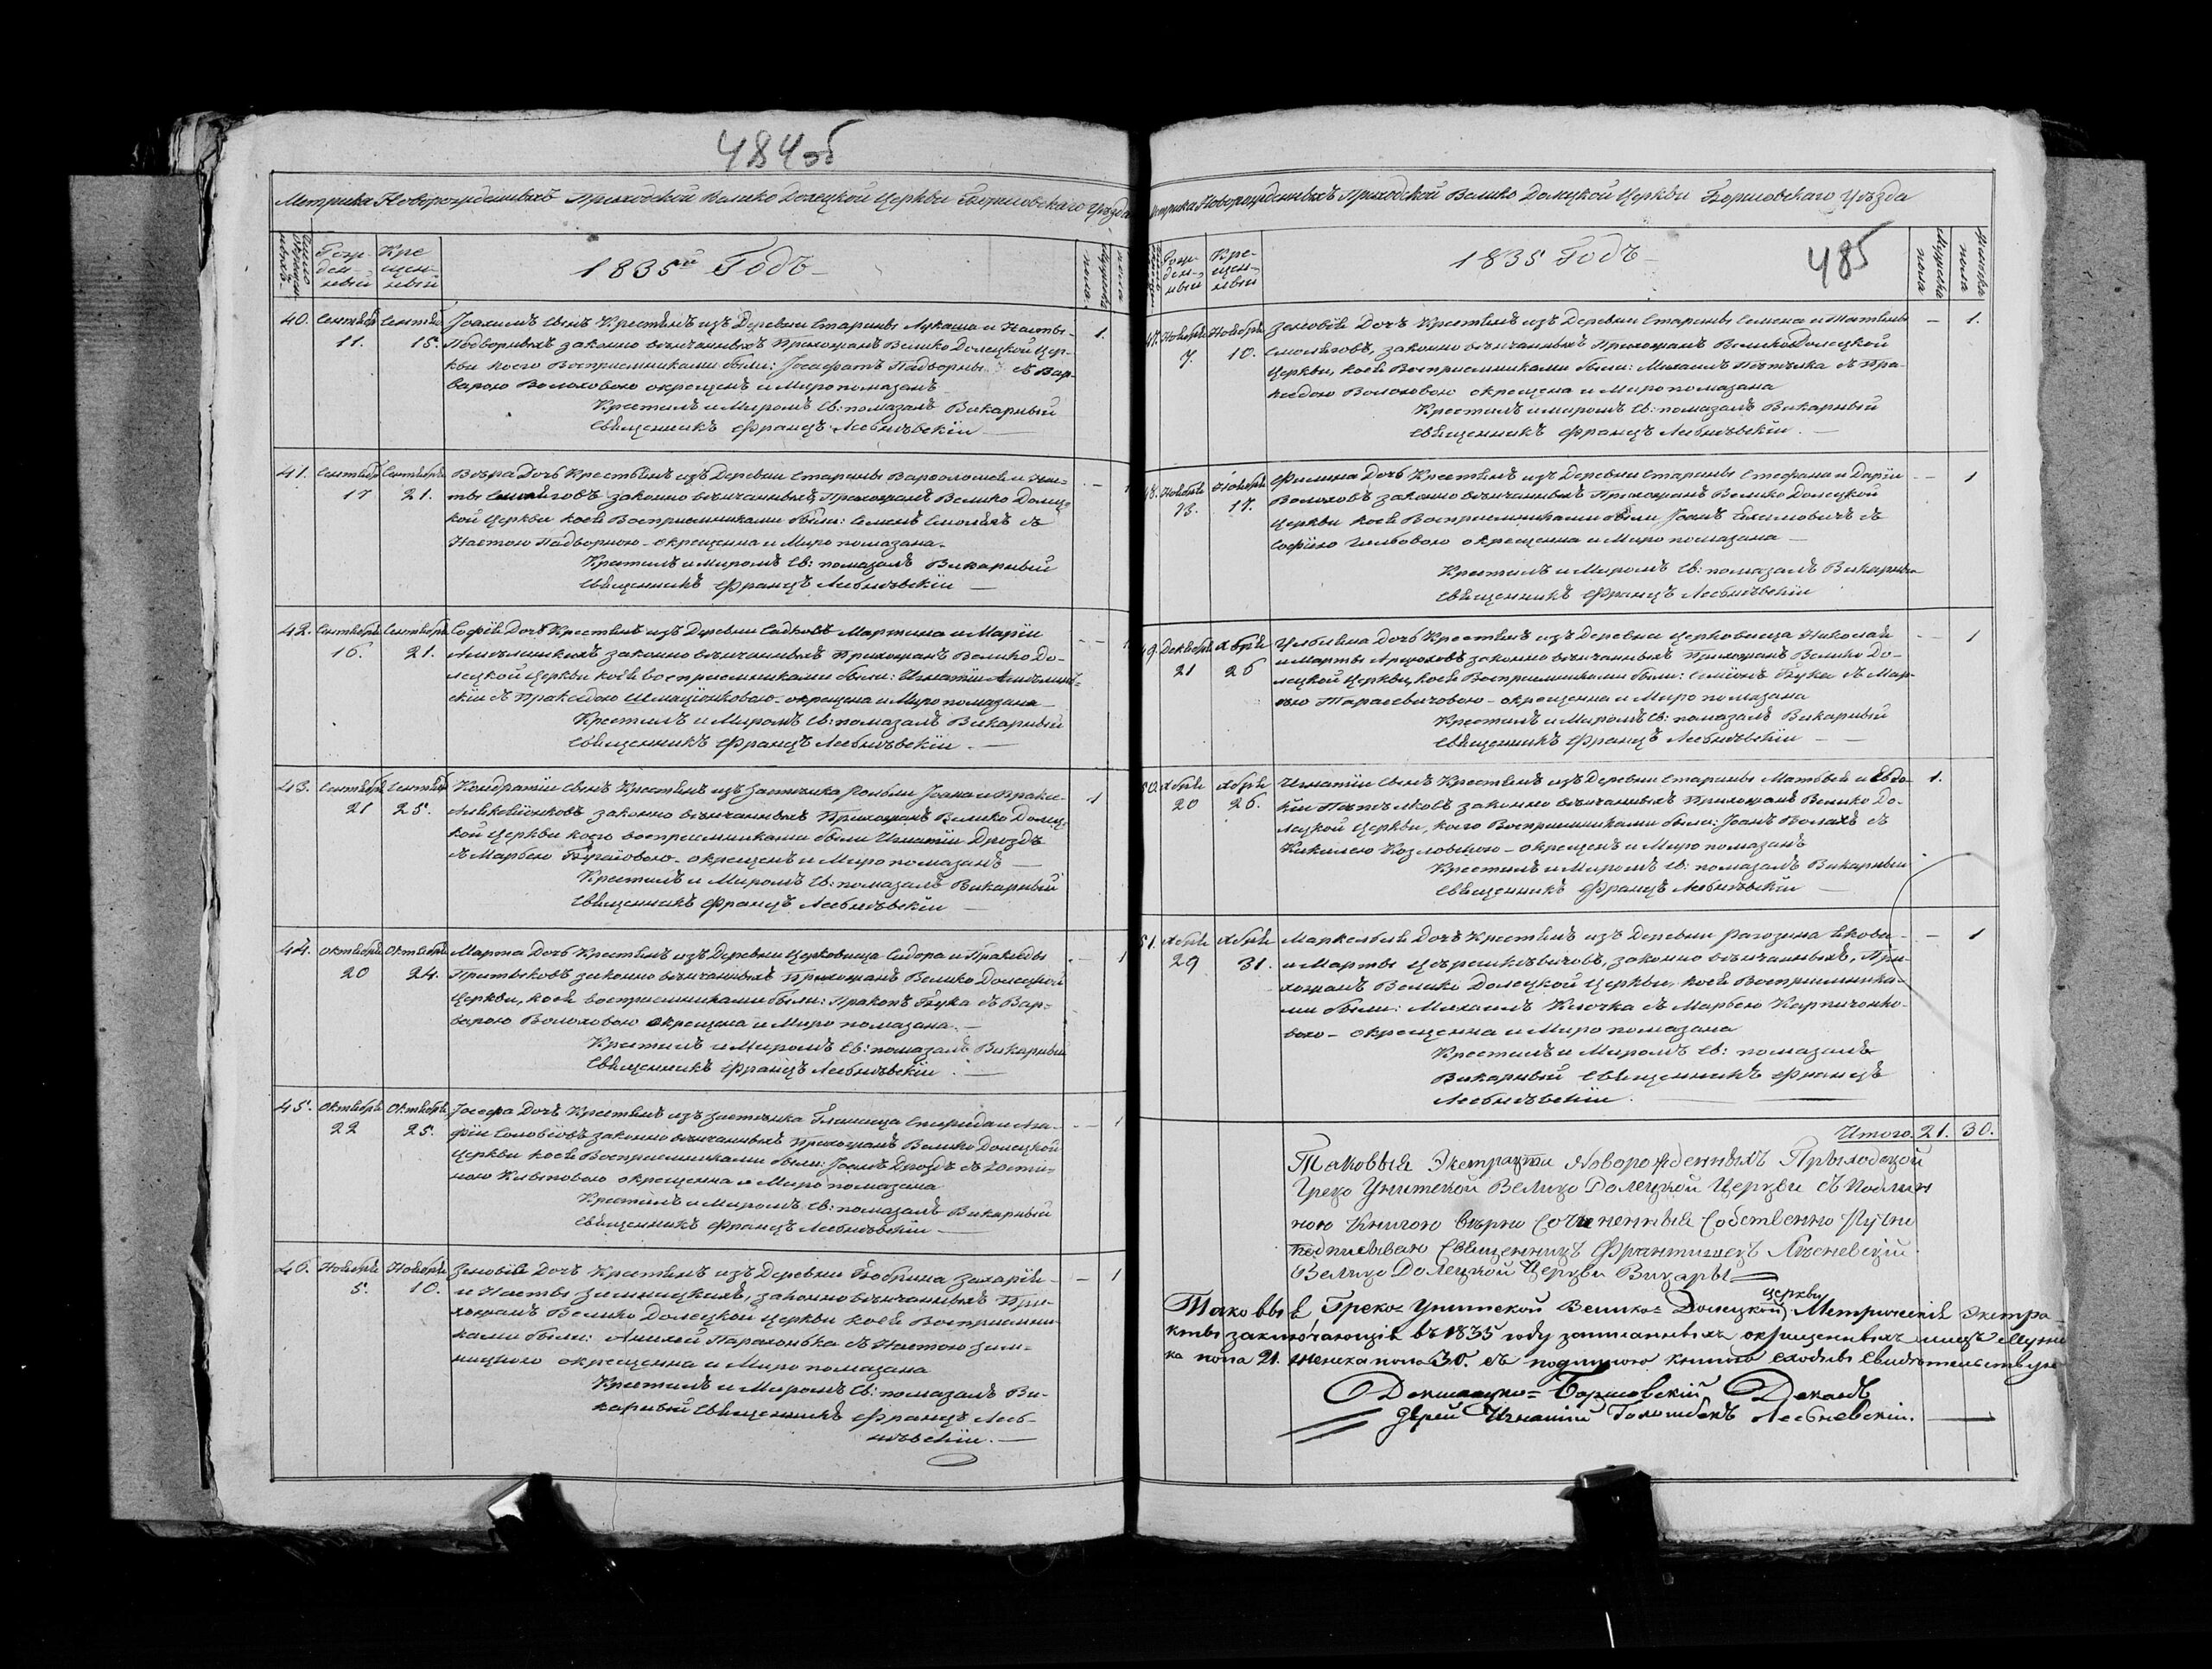 484об
Метрика Новорожденныхъ Приходской Велико Долецкой Церкви Борисовского Уѣзда
Рож-
ден-
ный
Кре
щен-
ный
1835й Годъ
40. Сентября 11. Сентября 15. Іоахимъ Сынъ Крестьянъ изъ Деревни Старины Лукаша и Насты 1.
Подворныхъ законно вѣнчанныхъ Прихожанъ Велико Долецкой Цер-
кви коего Восприемниками были: Іосафатъ Падворны съ Вар-
варою Волоховою окрещенъ и Миропомазанъ
Крестилъ и Миромъ Св: помазалъ Викарный
Священникъ Францъ Лесьнѣвскій
41. Сентября 17 Сентября 21. Вѣра Дочь Крестьянъ изъ Деревни Старины Варѳоломея и На-
сты Смоляговъ законно вѣнчанныхъ Прихожанъ Велико Долец-
кой Церкви коея Восприемниками были: Семенъ Смолякъ съ
Настою Падворною окрещенна и Миропомазана.
Крестилъ и Миромъ Св: помазалъ Викарный
Священникъ Францъ Лесьнѣвскій
42. Сентября 16. Сентября 21. Софія Дочь Крестьянъ изъ Деревни Садковъ Мартина и Маріи
законно вѣнчанныхъ Прихожанъ Велико До-
лецкой Церкви коея восприемниками были: Игнатіи
скій съ Праксѣдою окрещена и Миропомазана
Крестилъ и Миромъ Св: помазалъ Викарный
Священникъ Францъ Лесьнѣвскій
43. Сентября 21 Сентября 25. Кондратіи Сынъ Крестьянъ изъ Застѣнка Іоана и Пракс. 1
законно вѣнчанныхъ Прихожанъ Велико Долец-
кой Церкви коего восприемниками были Игнатіи Дроздъ
съ Марьею окрещенъ и Миропомазанъ
Крестилъ и Миромъ Св: помазалъ Викарный
Священникъ Францъ Лесьнѣвскій
44. Октября 20 Октября 24. Марта Дочь Крестьянъ изъ Деревни Церковища Сидора и Праксѣды
законно вѣнчанныхъ Прихожанъ Велико Долецкой
Церкви, коея восприемниками были: Пракопъ Бука съ Вар-
варою Волоховою окрещена и Миропомазана.
Крестилъ и Миромъ Св: помазалъ Викарный
Священникъ Францъ Лесьнѣвскій
45. Октября 22 Октября 25. Іосефа Дочь Крестьянъ изъ Застѣнка Спирида и Ага-
фіи Соловьёвъ законно вѣнчанныхъ Прихожанъ Велико Долецкой
Церкви коея Восприемниками были: Іоанъ Дроздъ съ Юсти-
ною окрещенна и Миропомазана
Крестилъ и Миромъ Св: помазалъ Викарный
Священникъ Францъ Лесьнѣвскій
46. Ноября 5. Ноября 10. Зеновія Дочь Крестьянъ изъ Деревни Бобрина Захаріи 1
и Насты Зимницкихъ, законно вѣнчанныхъ При-
хожанъ Велико Долецкой Церкви коея Восприемни-
ками были: съ Настою Зим-
ницкою окрещенна и Миропомазана
Крестилъ и Миромъ Св: помазалъ Ви-
карный Священникъ Францъ Лесь-
нѣвскіи.
Метрика Новорожденныхъ Приходской Велико Долецкой Церкви Борисовского Уѣзда
485
Рож-
ден-
ный
Кре-
щен-
ный
1835 Годъ
Мужеска пола
Женска пола
47. Ноября 7. Ноября 10. Зеновія Дочь Крестьянъ изъ Деревни Старины Семена и Татьяны 1.
Смоляговъ, законно вѣнчанныхъ Прихожанъ Велико Долецкой
Церкви, коея Восприемниками были: Михаилъ Пѣтѣлка съ Пра-
ксѣдою Волоховою окрещена и Миропомазана
Крестилъ и миромъ Св: помазалъ Викарный
Священникъ Францъ Лесьнѣвскіи.
48. Ноября 13. Ноября 17. Дочь Крестьянъ изъ Деревни Старины Стефана и Даріи 1
Волоховъ законно вѣнчанныхъ Прихожанъ Велико Долецкой
Церкви коея Восприемниками были Іоанъ съ
Софіею окрещена и Миропомазана
Крестилъ и Миромъ Св: помазалъ Викарный
Священникъ Францъ Лесьнѣвскіи
49. Декабря 21 Хбря 26 Ульяна Дочь Крестьянъ изъ Деревни Церковища Николая 1
и Марты законно вѣнчанныхъ Прихожанъ Велико До-
лецкой Церкви, коея Восприемниками были: Семіонъ Бука съ Мар-
тою Тарасевичовою окрещена и Миропомазана
Крестилъ и Миромъ Св: помазалъ Викарный
Священникъ Францъ Лесьнѣвскіи
50. Хбря 20 Хбря 26. Игнатіи Сынъ Крестьянъ изъ Деревни Старины Матвѣя и Евдо- 1.
кіи Пѣтѣлковъ законно вѣнчанныхъ Прихожанъ Велико До-
лецкой Церкви, коего Восприемниками были: Іоанъ Волохъ съ
Кикилею Козловскою окрещенъ и Миропомазанъ
Крестилъ и Миромъ Св: помазалъ Викарный
Священникъ Францъ Лесьнѣвскіи
51. Хбря 29 Хбря 31. Дочь Крестьянъ изъ Деревни Рагозина Якова 1
и Марты законно вѣнчанныхъ, При-
хожанъ Велико Долецкой Церкви, коея Восприемника-
ми были: Михаилъ Клочка съ Марьею Карпичонко-
вою окрещенна и Миропомазана
Крестилъ и Миромъ Св: помазалъ
Викарный Священникъ Францъ
Лесьнѣвскіи.
Итого. 21. 30.
Таковыя Экстракти Новорожденныхъ Прыходской
Греко Унитской Велико Долецкой Церкви съ Подлин
ною Книгою вѣрно Сочиненныя Собственно Ручно
подписываю Священникъ Франтишекъ Лѣсневскій
Велико Долецкой Церкви Викары
Таковыя Греко-Унитской Велико-Долецкой Церкви Метрическія Экстра-
кты заключающія въ 1835 году записанныхъ окрещенныхъ лицъ Муже
ка пола 21. женска пола 30. съ подлинною книгою сходны Свидѣтельствую
Докшицко-Борисовскій Деканъ
Іерей Игнатій Голембъ Лесьневскій.